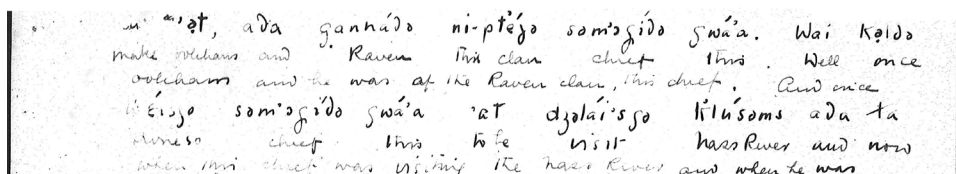 ada gannádə ni-ptéɣə səm'ɔgídə gwá'a. Wai kəldə
make oolchans and Raven this clan chief this. Well once
oolchans and he was of the Raven clan, this chief. And once
səm'ɔgídə gwá'a 'at dzəlái'sgə k'lúsəms ada ta
chief this to be visit Nass River and now
when this chief was visiting the Nass River and when he was